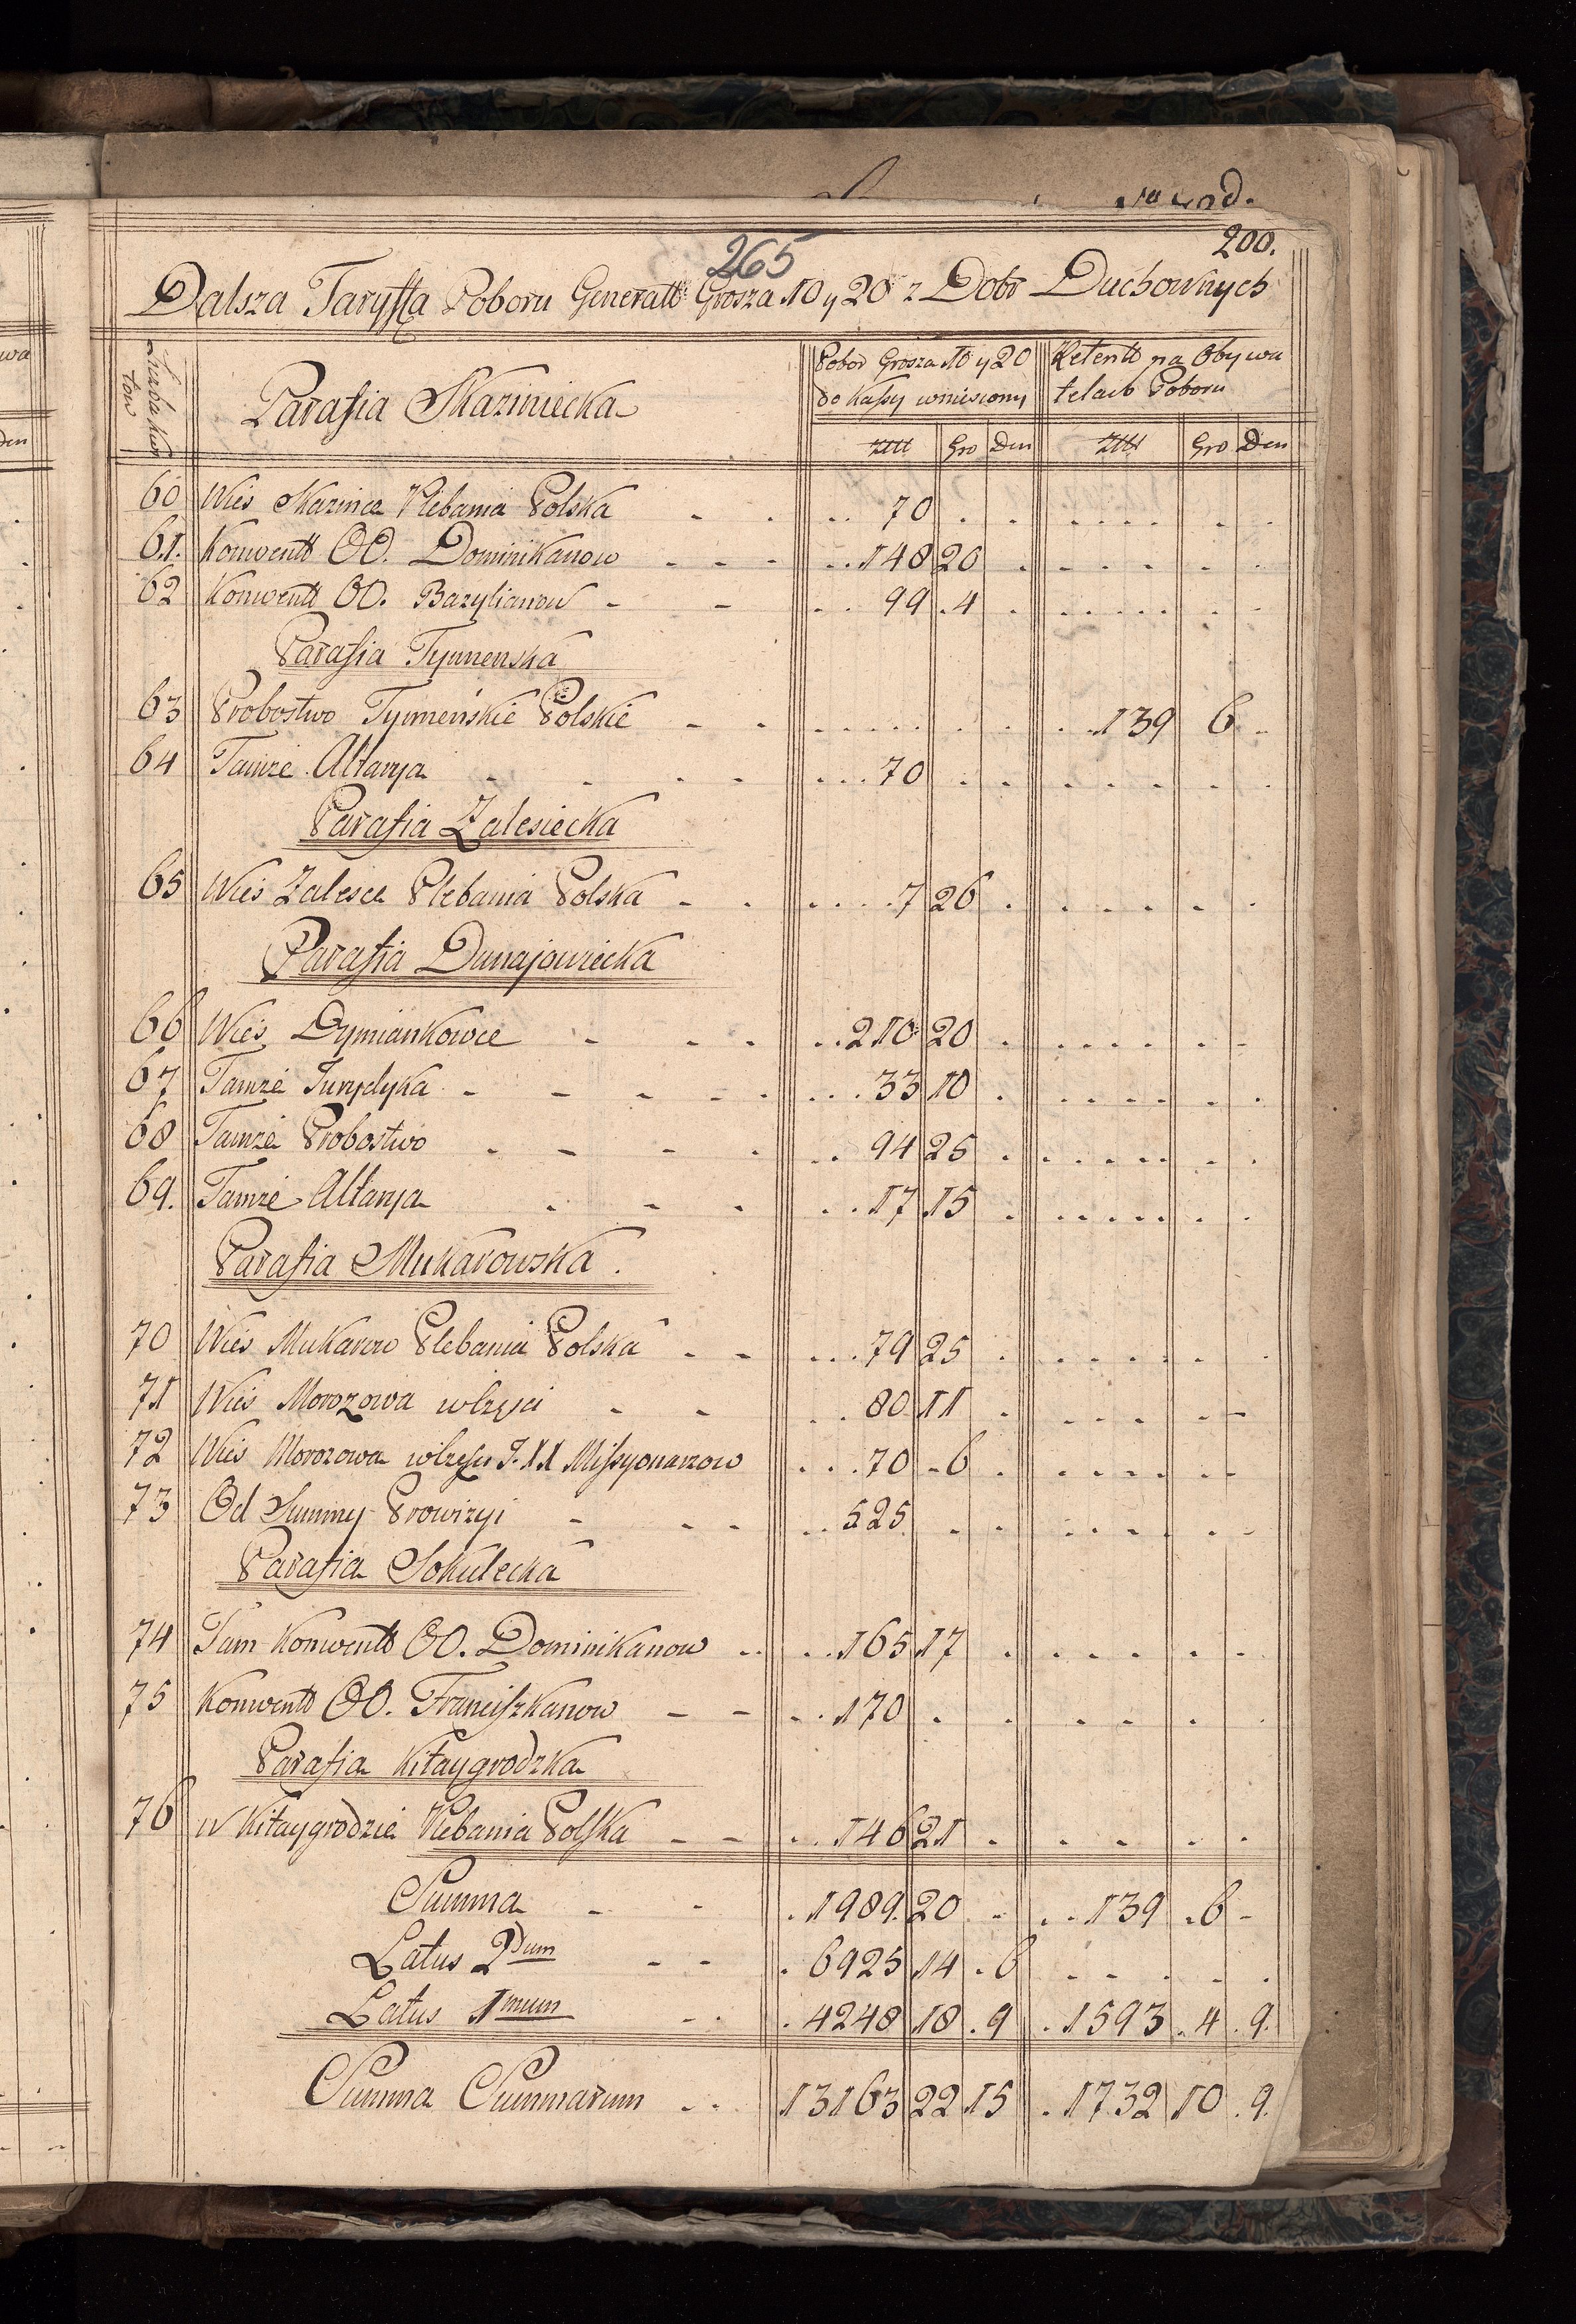 200.
265
Dalsza Taryffa Poboru Generall: Grosza 10 y 20 z Dobr Duchownych
Liczba kwi
tow
Parafia Skaziniecka
Pobor Grosza 10 y 20
do Kassy wniesiony
Retentt na Obywa
telach Poboru
Złłł Gro Den Złłł Gro Den
60 Wies Skazince Plebania Polska 70
61. Konwentt OO. Dominikanow 148 20
62 Konwentt OO. Bazylianow 99 4
Parafia Tynnenska
63 Probostwo Tynnenskie Polskie 139 6
64 Tamże Altarya 70
Parafia Zalesiecka
65 Wies Zalesce Plebania Polska 7 26
Parafia Dunajowiecka
66 Wies Dymiankowce 210 20
67 Tamże Jurydyka 33 10
68 Tamże Probostwo 94 25
69. Tamże Altarya 17 15
Parafia Mukarowska.
70 Wies Mukarow Plebania Polska 79 25
71 Wies Morozowa w części 80 11
72 Wies Morozowa w części J. XX Missyonarzow 70 6
73 Od Summy Prowizyi 525
Parafia Sokulecka
74 Tam Konwentt OO. Dominikanow 165 17
75 Konwentt OO. Franciszkanow 170
Parafia Kitaygrodzka
76 w Kitaygrodzie Plebania Polska 146 21
Summa 1989. 20 139 6
Latus 2dum 6925 14 6
Latus 1mum 4248 18 9 1593 4 9.
Summa Summarum 13163 22 15 1732 10 9.